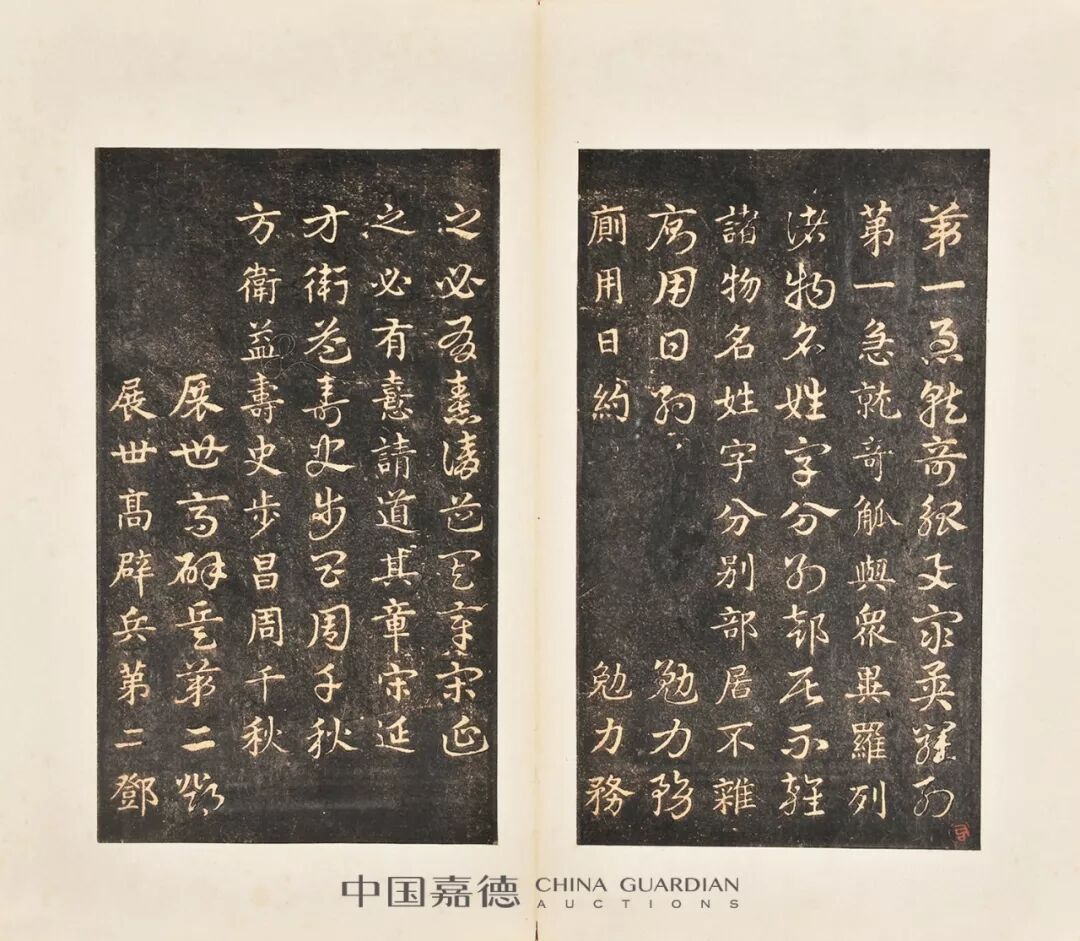 第一急就奇觚與衆異羅列
第一急就奇觚與衆異羅列
諸物名姓字分別部居不雜
諸物名姓字分別部居不雜
廁用日約 勉力務
廁用日約 勉力務
之必有憙請道其章宋延
之必有憙請道其章宋延
方衛益壽史步昌周千秋
方衛益壽史步昌周千秋
展世高辟兵第二鄧
展世高辟兵第二鄧
中国嘉德 CHINA GUARDIAN
AUCTIONS